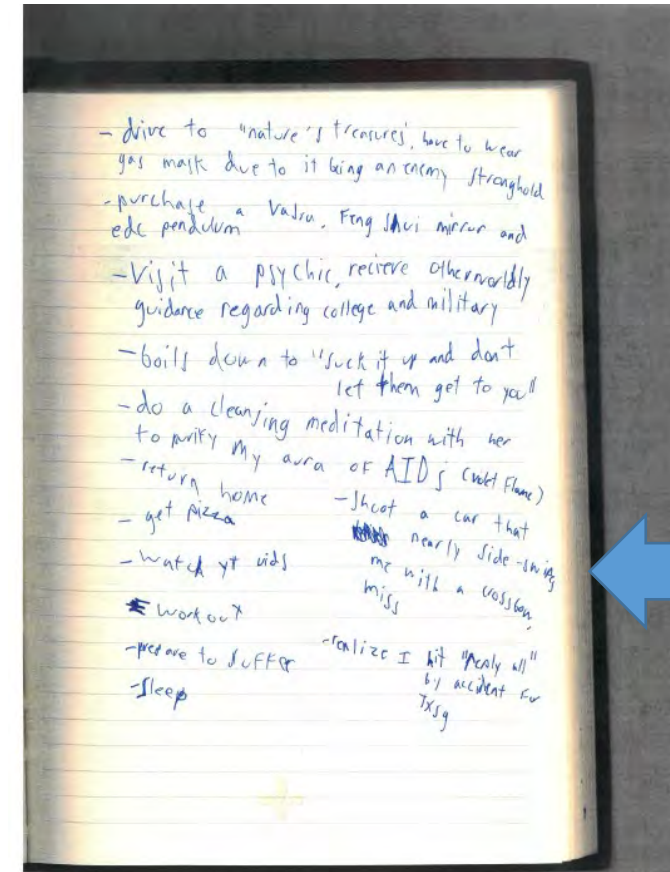 - drive to "nature's treasures', have to wear
gas mask due to it being an enemy stronghold
- purchase a Vajra, Feng Shui mirror and
edc pendulum
- Visit a psychic, recieve otherworldly
guidance regarding college and military
- boils down to "suck it up and don't
let them get to you"
- do a cleansing meditation with her
to purify my aura of AIDs (violet Flame)
- return home
- get pizza
- watch yt vids
workout
- prepare to suffer
- sleep
- Shoot a car that
nearly side-swipes
me with a crossbow,
miss
- realize I hit "reply all"
by accident for